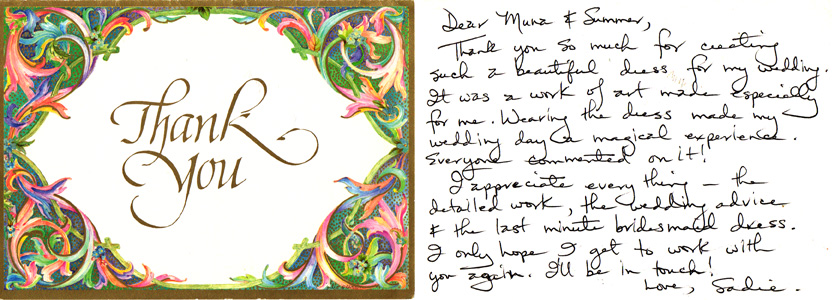 Thank
You
Dear Muna & Summer,
Thank you so much for creating
such a beautiful dress for my wedding.
It was a work of art made especially
for me. Wearing the dress made my
wedding day a magical experience.
Everyone commented on it!
I appreciate everything – the
detailed work, the wedding advice
& the last minute bridesmaid dress.
I only hope I get to work with
you again. I'll be in touch!
Love, Sadie.